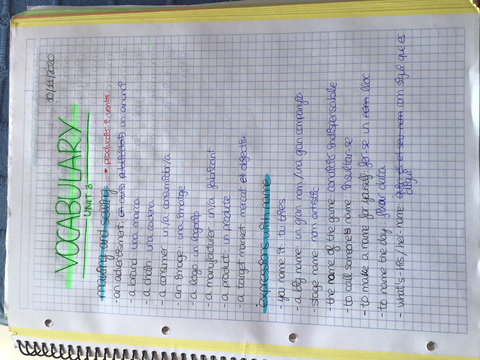 10/11/2020
VOCABULARY
UNIT 3
making and selling • productes i venta
- an advertisement un anunci
- a brand una marca
- a chain una cadena
- a consumer un/a consumidor/a
- an image una imatge
- a logo un logotip
- a manufacturer un/a fabricant
- a product un producte
- a target market mercat objectiu
Expressions with name
- you name it tu
- a big name un gran nom/una gran companyia
- stage name nom artístic
- the name of the game condició indispensable
- to call someone's name insultar-se
- to make a name for yourself fer-se un lloc
- to name the day fixar data
- what's-his/her-name com sigui que es digui